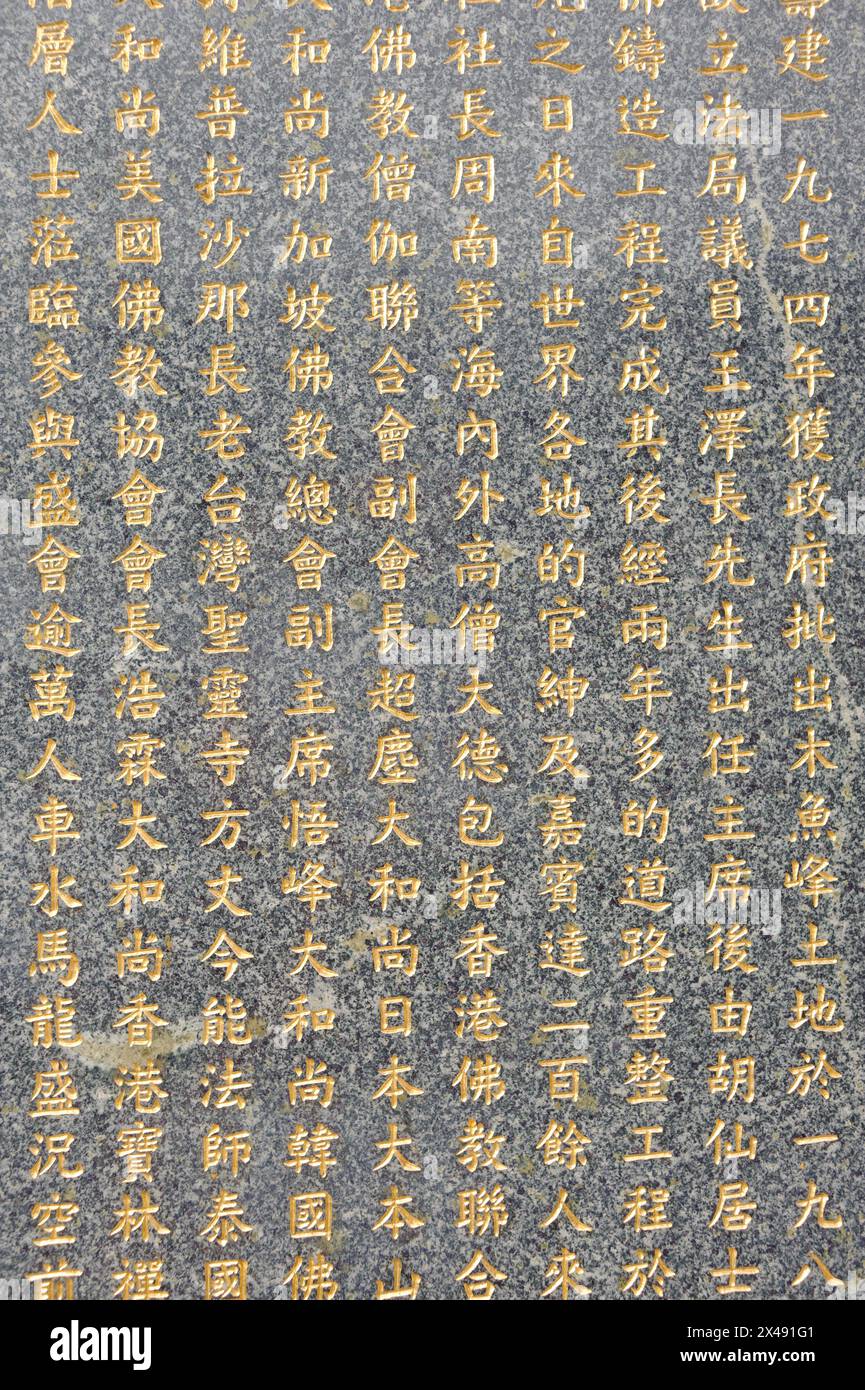 籌建一九七四年獲政府批出木魚峰土地於一九八
立法局議員王澤長先生出任主席後由胡仙居士
佛鑄造工程完成其後經兩年多的道路重整工程於
之日來自世界各地的官紳及嘉賓達二百餘人來
社長周南等海內外高僧大德包括香港佛教聯合
港佛教僧伽聯合會副會長超塵大和尚日本大本山
大和尚新加坡佛教總會副主席悟峰大和尚韓國佛
維普拉沙那長老台灣聖靈寺方丈今能法師泰國
大和尚美國佛教協會會長浩霖大和尚香港寶林禪
層人士蒞臨參與盛會逾萬人車水馬龍盛況空前
alamy
Image ID: 2X491G1
www.alamy.com